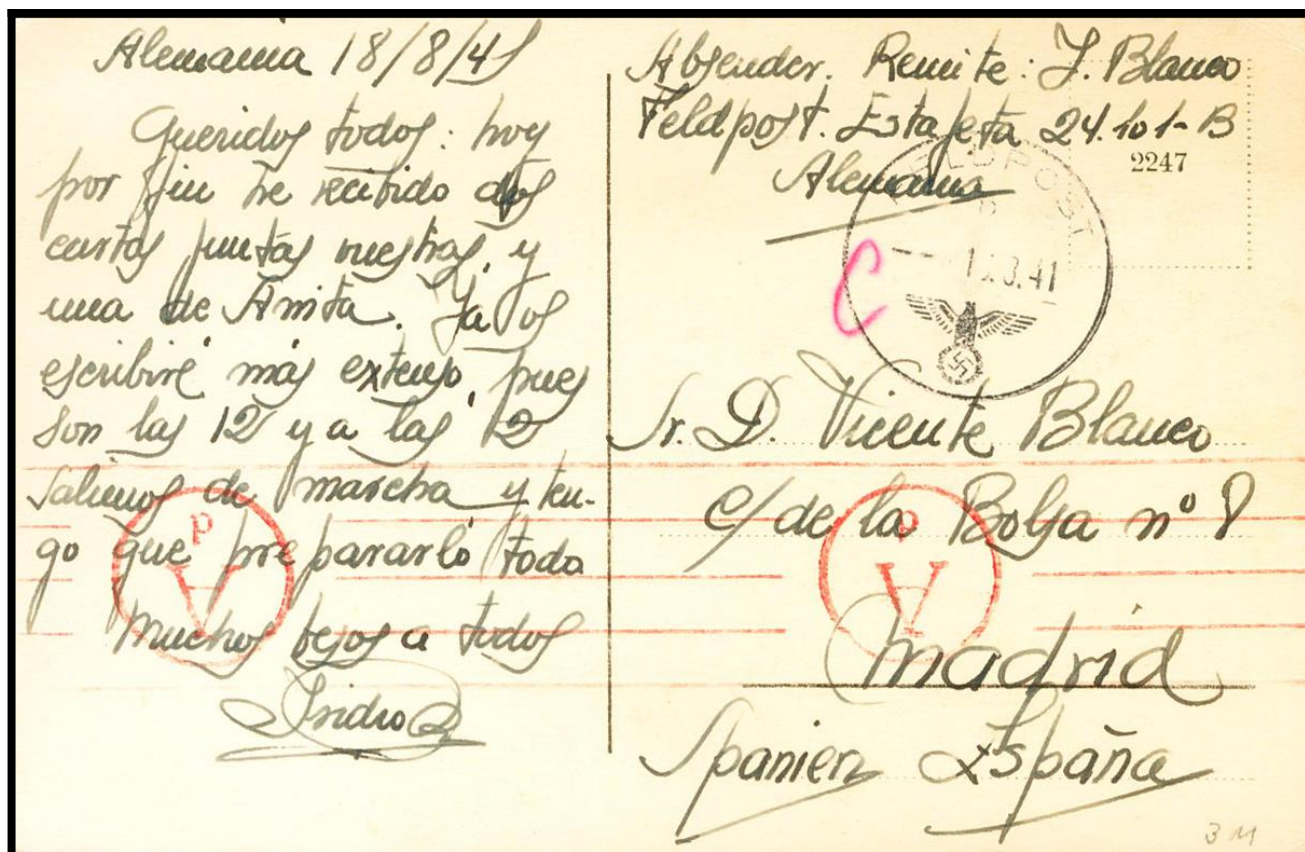 Alemania 18/8/41
Queridos todos: hoy
por fin he recibido dos
cartas juntas vuestras, y
una de Anita. Ya os
escribiré más extenso, pues
son las 12 y a las 2
salimos de marcha y ten-
go que prepararlo todo
Muchos besos a todos
Isidro
Absender. Remite: I. Blanco
Feldpost. Estafeta 24.101-B
Alemania
2247
FELDPOST
b
.8.41
C
Sr. D. Vicente Blanco
c/ de la Bolsa nº 8
Madrid
Spanien España
A d
A d